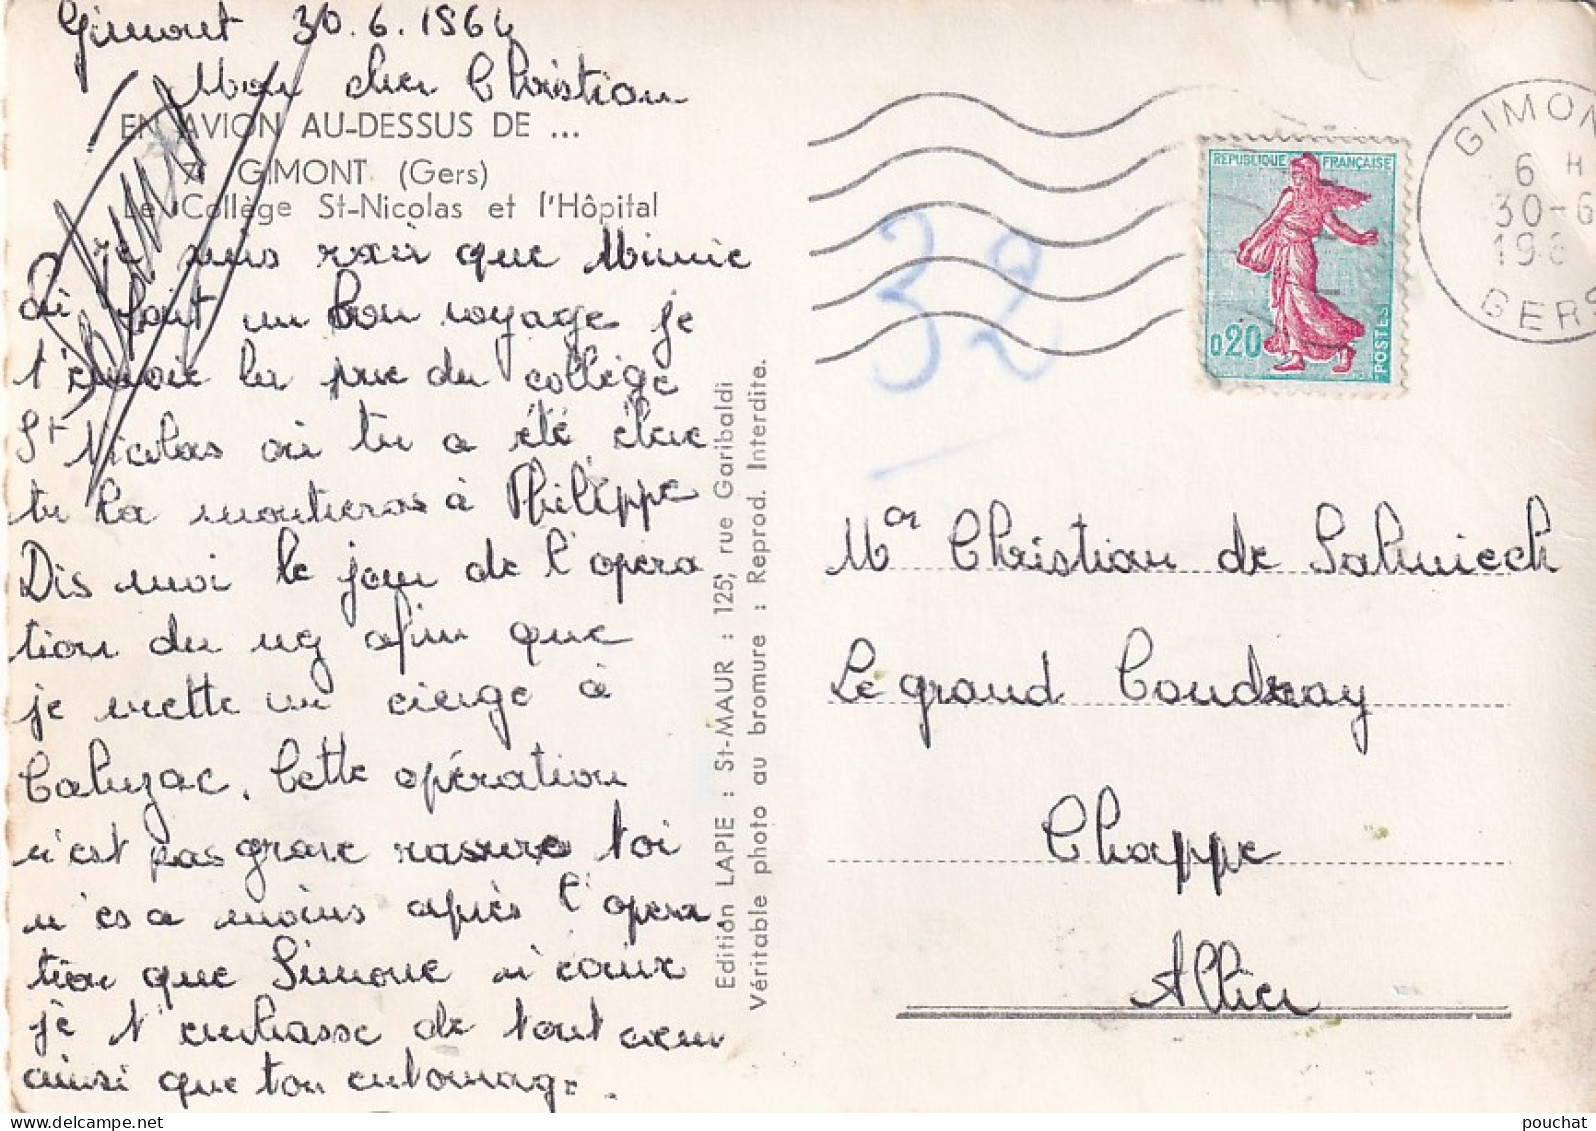 Gimont 30.6.1964
Mon cher Christian
EN AVION AU-DESSUS DE ...
GIMONT (Gers)
Le Collège St-Nicolas et l'Hôpital
que Mimie
ai fait un bon voyage je
t'envoie la vue du collège
St Nicolas où tu a été élève
tu la montreras à Philippe
Dis moi le jour de l'opéra
tion du afin que
je mette un cierge à
Cahuzac. Cette opération
n'est pas grave rassure toi
moins après l'opéra
tion que Simone
je t'embrasse de tout cœur
ainsi que ton entourage.
Edition LAPIE : St-MAUR : 125, rue Garibaldi
Véritable photo au bromure : Reprod. Interdite.
32
REPUBLIQUE FRANÇAISE
0,20
POSTES
GIMON
6 H
30-6
196
GERS
Mr Christian de Salmiech
Le grand Coudray
Chappe
Allier
pouchat